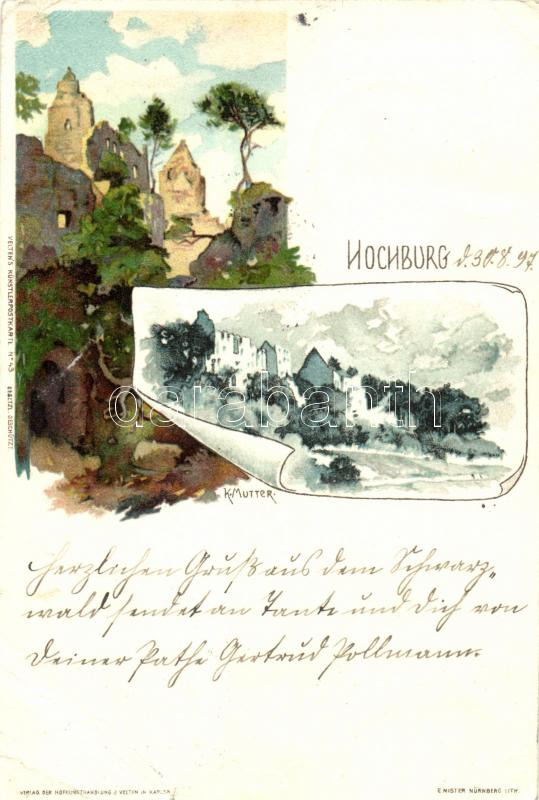 HOCHBURG d. 30.8.97.
VELTEN'S KÜNSTLERPOSTKARTE Nº 43 GESETZL. GESCHÜTZT
darabanth
K. MUTTER.
Herzlichen Gruß aus dem Schwarz„
wald sendet an Tante und Dich von
Deiner Pathe Gertrud Pollmann.
VERLAG DER HOFKUNSTHANDLUNG J. VELTEN IN KARLSR.
E. NISTER NÜRNBERG LITH.